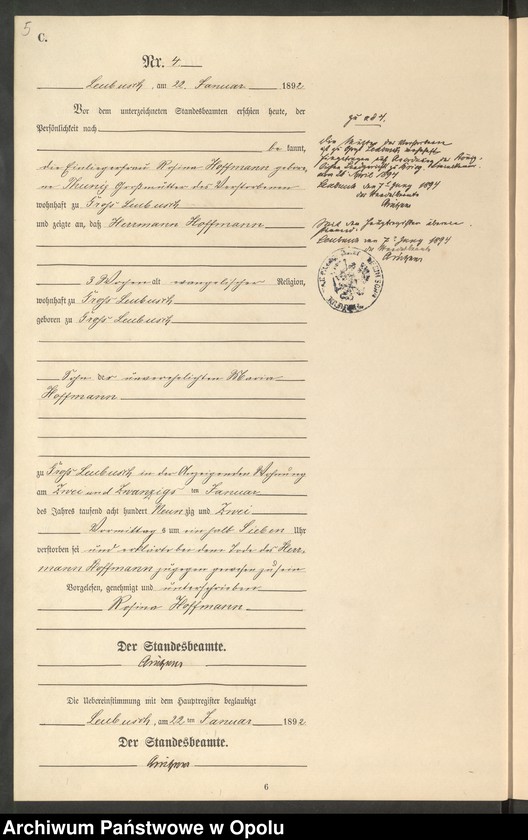 5
C.
Nr. 4
Leubusch, am 22. Januar 1892
Vor dem unterzeichneten Standesbeamten erschien heute, der
Persönlichkeit nach
be kannt,
die Einliegerfrau Rosina Hoffmann gebore-
ne Großmutter des Verstorbenen
wohnhaft zu Groß Leubusch
und zeigte an, daß Herrmann Hoffmann
3 Wochen alt evangelischer Religion,
wohnhaft zu Groß Leubusch
geboren zu Groß Leubusch
Sohn der unverehelichten Maria
Hoffmann
zu Groß Leubusch in der Anzeigenden Wohnung
am Zwei und Zwanzigs ten Januar
des Jahres tausend acht hundert Neun zig und Zwei
Vormittag s um ein halb Sieben Uhr
verstorben sei und erklärte bei dem Tode des Herr-
mann Hoffmann zugegen gewesen zu sein
Vorgelesen, genehmigt und unterschrieben
Rosina Hoffmann
Der Standesbeamte.
Die Uebereinstimmung mit dem Hauptregister beglaubigt
Leubusch, am 22 ten Januar 1892
Der Standesbeamte.
6
zu 4.
Die Mutter des Verstorbenen
am April 1894
Leubusch den 7. Juny 1894
der Standesbeamte
Mit dem Hauptregister überein-
stimmend.
Leubusch den 7. Juny 1894
der Standesbeamte
Archiwum Państwowe w Opolu